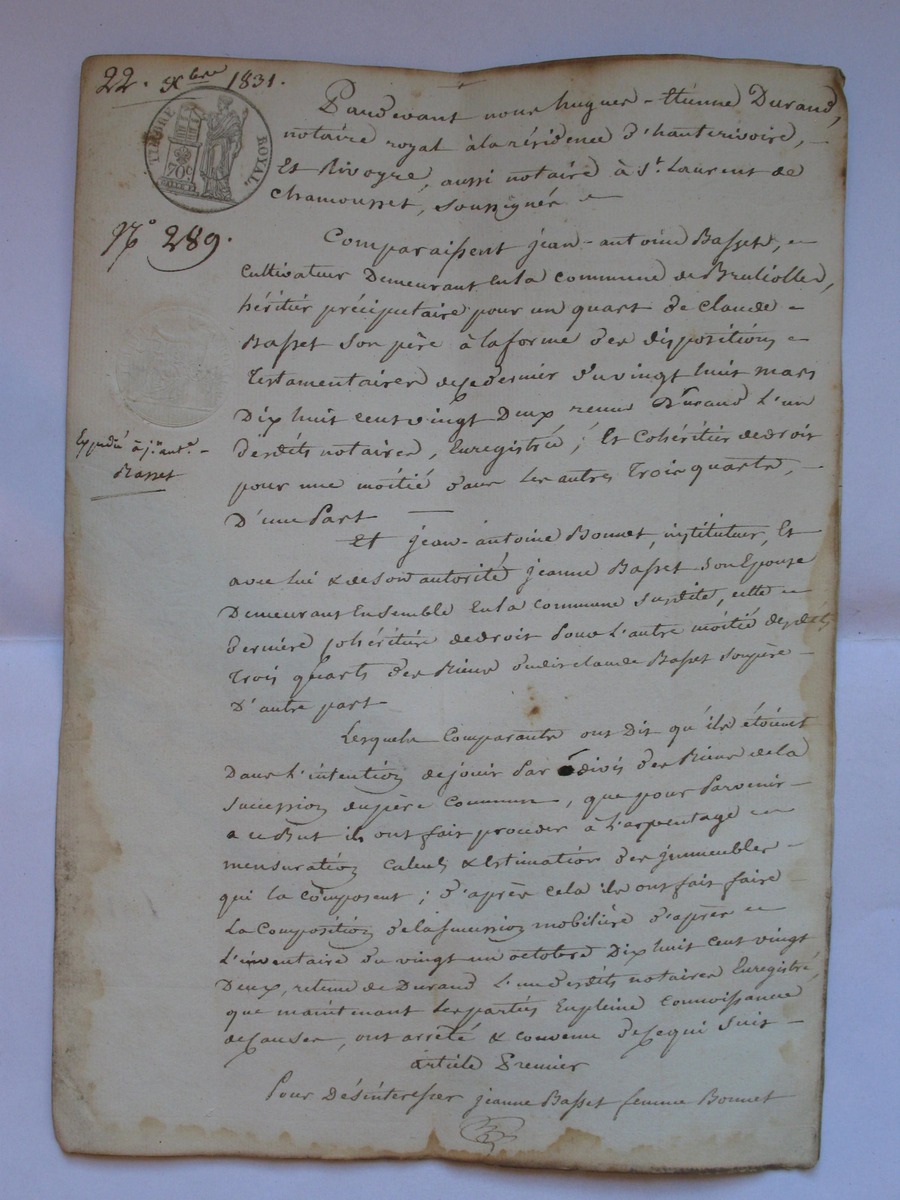 22. Xbre 1831.
TIMBRE ROYAL
70c
Pardevant nous hugues-Etienne Durand,
notaire royal à la résidence d'hauterivoire,
Et Rivoyre, aussi notaire à St. Laurent de
Chamousset, soussignés
No 289.
Comparaissent jean-antoine Basset,
Cultivateur Demeurant en la commune de Brulioles,
héritier préciputaire pour un quart de Claude
Basset son père à la forme des dispositions
Testamentaires de ce dernier du vingt huit mars
Dix huit cent vingt Deux reçues Durand l'un
Desdits notaires, Enregistrée; Et Cohéritier de droit
pour une moitié dans les autres Trois quarts,
D'une Part
Expédié à jn. ant.e
Basset
Et jean-antoine Bonnet, instituteur, Et
avec lui & de son autorité jeanne Basset son Epouse
Demeurant Ensemble En la commune susdite, cette
Dernière cohéritière de droit pour l'autre moitié desdits
Trois quarts des Biens dudit claude Basset son père
D'autre part
Lesquels Comparants ont Dit qu'ils étoient
Dans l'intention de jouir Par divis des Biens de la
succession du père Commun, que pour Parvenir
a ce But ils ont fait procéder à l'arpentage
mensuration Calculs & Estimation des immeubles
qui la Composent; d'après cela ils ont fait faire
La Composition de la succession mobilière d'après
L'inventaire du vingt un octobre Dix huit Cent vingt
Deux, retenu de Durand l'un desdits notaires Enregistré,
que maintenant les parties En pleine Connoissance
de Causes, ont arrêté & convenu de Ce qui Suit
article Premier
Pour Désintéresser jeanne Basset femme Bonnet